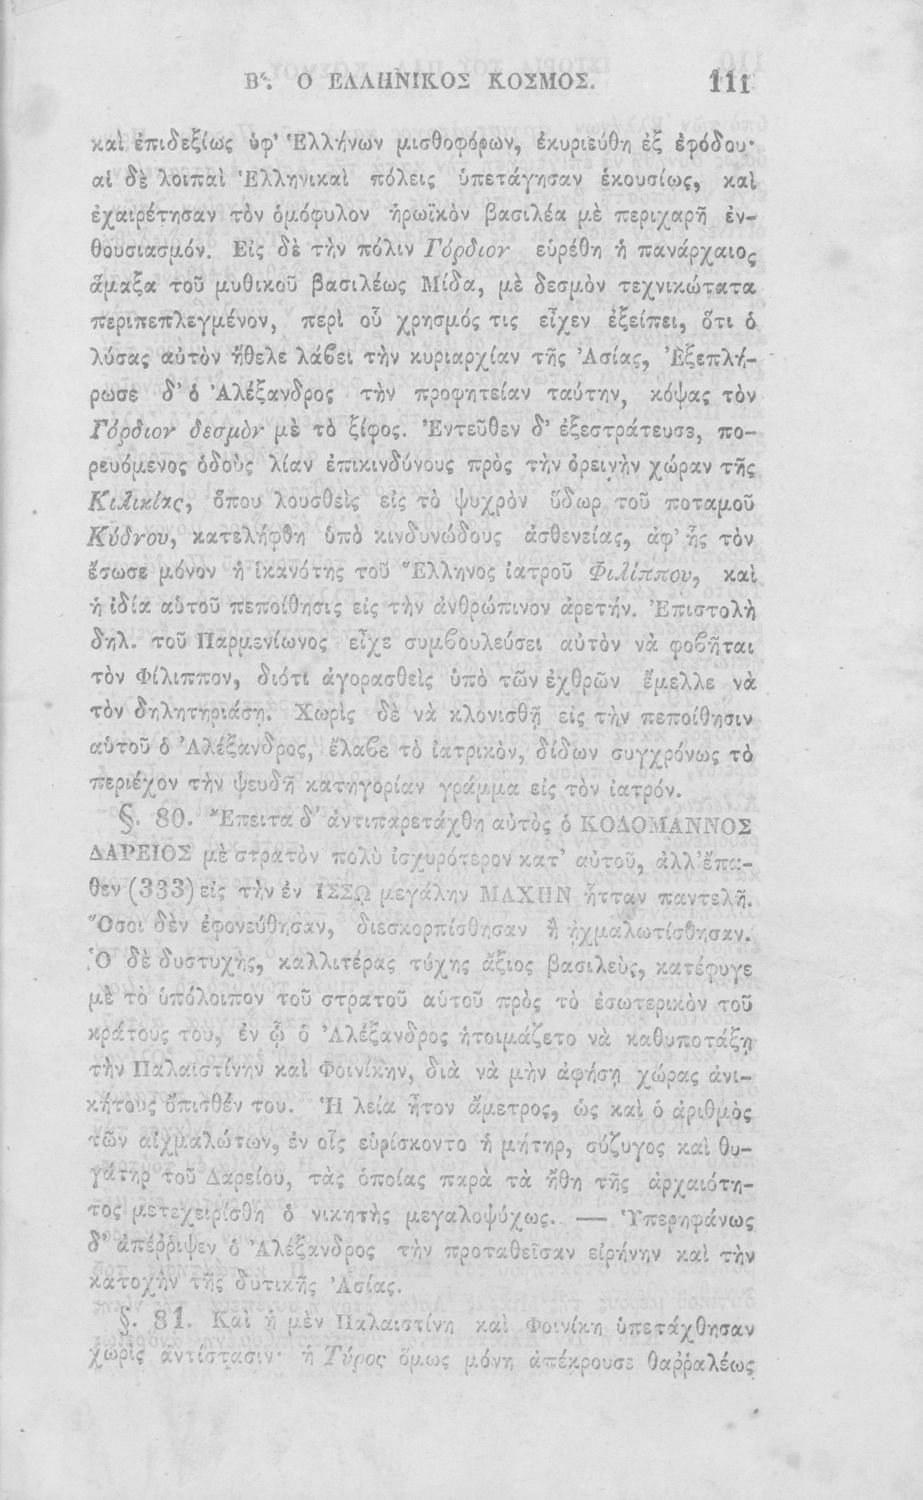 Β΄. Ο ΕΛΛΗΝΙΚΟΣ ΚΟΣΜΟΣ. 111
καὶ ἐπιδεξίως ὑφ' Ἑλλήνων μισθοφόρων, ἐκυριεύθη ἐξ ἐφόδου·
αἱ δὲ λοιπαὶ Ἑλληνικαὶ πόλεις ὑπετάγησαν ἑκουσίως, καὶ
ἐχαιρέτησαν τὸν ὁμόφυλον ἡρωϊκὸν βασιλέα μὲ περιχαρῆ ἐν-
θουσιασμόν. Εἰς δὲ τὴν πόλιν Γόρδιον εὑρέθη ἡ πανάρχαιος
ἅμαξα τοῦ μυθικοῦ βασιλέως Μίδα, μὲ δεσμὸν τεχνικώτατα
περιπεπλεγμένον, περὶ οὗ χρησμός τις εἶχεν ἐξείπει, ὅτι ὁ
λύσας αὐτὸν ἤθελε λάβει τὴν κυριαρχίαν τῆς Ἀσίας, Ἐξεπλή-
ρωσε δ' ὁ Ἀλέξανδρος τὴν προφητείαν ταύτην, κόψας τὸν
Γόρδιον δεσμὸν μὲ τὸ ξίφος. Ἐντεῦθεν δ' ἐξεστράτευσε, πο-
ρευόμενος ὁδοὺς λίαν ἐπικινδύνους πρὸς τὴν ὀρεινὴν χώραν τῆς
Κιλικίας, ὅπου λουσθεὶς εἰς τὸ ψυχρὸν ὕδωρ τοῦ ποταμοῦ
Κύδνου, κατελήφθη ὑπὸ κινδυνώδους ἀσθενείας, ἀφ' ἧς τὸν
ἔσωσε μόνον ἡ ἱκανότης τοῦ Ἕλληνος ἰατροῦ Φιλίππου, καὶ
ἡ ἰδία αὑτοῦ πεποίθησις εἰς τὴν ἀνθρώπινον ἀρετήν. Ἐπιστολὴ
δηλ. τοῦ Παρμενίωνος εἶχε συμβουλεύσει αὐτὸν νὰ φοβῆται
τὸν Φίλιππον, διότι ἀγορασθεὶς ὑπὸ τῶν ἐχθρῶν ἔμελλε νὰ
τὸν δηλητηριάσῃ. Χωρὶς δὲ νὰ κλονισθῇ εἰς τὴν πεποίθησιν
αὑτοῦ ὁ Ἀλέξανδρος, ἔλαβε τὸ ἰατρικὸν, δίδων συγχρόνως τὸ
περιέχον τὴν ψευδῆ κατηγορίαν γράμμα εἰς τὸν ἰατρόν.
§. 80. Ἔπειτα δ' ἀντιπαρετάχθη αὐτὸς ὁ ΚΟΔΟΜΑΝΝΟΣ
ΔΑΡΕΙΟΣ μὲ στρατὸν πολὺ ἰσχυρότερον κατ' αὐτοῦ, ἀλλ' ἔπα-
θεν (333) εἰς τὴν ἐν ΙΣΣΩ μεγάλην ΜΑΧΗΝ ἧτταν παντελῆ.
Ὅσοι δὲν ἐφονεύθησαν, διεσκορπίσθησαν ἢ ᾐχμαλωτίσθησαν.
Ὁ δὲ δυστυχὴς, καλλιτέρας τύχης ἄξιος βασιλεὺς, κατέφυγε
μὲ τὸ ὑπόλοιπον τοῦ στρατοῦ αὑτοῦ πρὸς τὸ ἐσωτερικὸν τοῦ
κράτους του, ἐν ᾧ ὁ Ἀλέξανδρος ἡτοιμάζετο νὰ καθυποτάξῃ
τὴν Παλαιστίνην καὶ Φοινίκην, διὰ νὰ μὴν ἀφήσῃ χώρας ἀνι-
κήτους ὄπισθέν του. Ἡ λεία ἦτον ἄμετρος, ὡς καὶ ὁ ἀριθμὸς
τῶν αἰχμαλώτων, ἐν οἷς εὑρίσκοντο ἡ μήτηρ, σύζυγος καὶ θυ-
γάτηρ τοῦ Δαρείου, τὰς ὁποίας παρὰ τὰ ἤθη τῆς ἀρχαιότη-
τος μετεχειρίσθη ὁ νικητὴς μεγαλοψύχως. — Ὑπερηφάνως
δ' ἀπέῤῥιψεν ὁ Ἀλέξανδρος τὴν προταθεῖσαν εἰρήνην καὶ τὴν
κατοχὴν τῆς δυτικῆς Ἀσίας.
§. 81. Καὶ ἡ μὲν Παλαιστίνη καὶ Φοινίκη ὑπετάχθησαν
χωρὶς ἀντίστασιν· ἡ Τύρος ὅμως μόνη ἀπέκρουσε θαῤῥαλέως